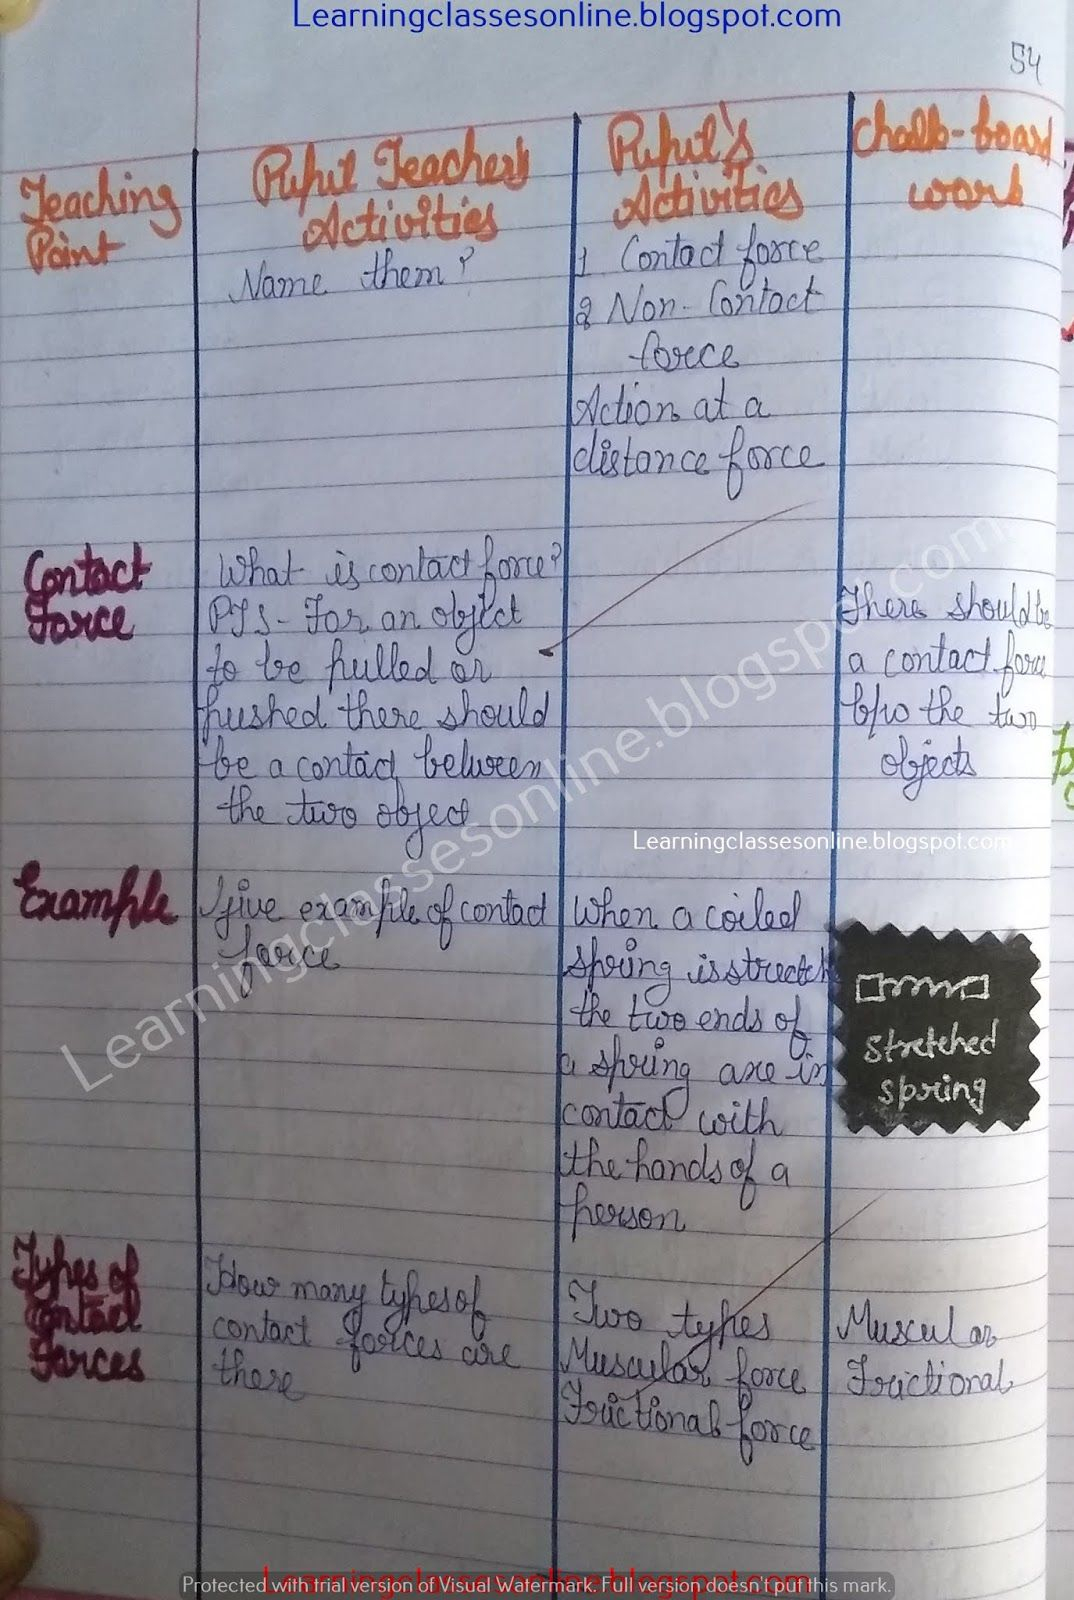 Learningclassesonline.blogspot.com
54
Teaching
Point
Pupil Teacher's
Activities
Pupil's
Activities
Chalk-board
work
Name them?
1 Contact force
2 Non-Contact
force
Action at a
distance force
Contact
Force
What is contact force?
PTS - For an object
to be pulled or
pushed there should
be a contact between
the two object
There should be
a contact force
b/w the two
objects
Learningclassesonline.blogspot.com
Example
give example of contact
force
When a coiled
spring is stretch
the two ends of
a spring are in
contact with
the hands of a
person
Stretched
spring
Types of
Contact
Forces
How many types of
contact forces are
there
Two types
Muscular force
Frictional force
Muscular
Frictional
Learningclassesonline.blogspot.com
Learningclassesonline.blogspot.com
Protected with trial version of Visual Watermark. Full version doesn't put this mark.